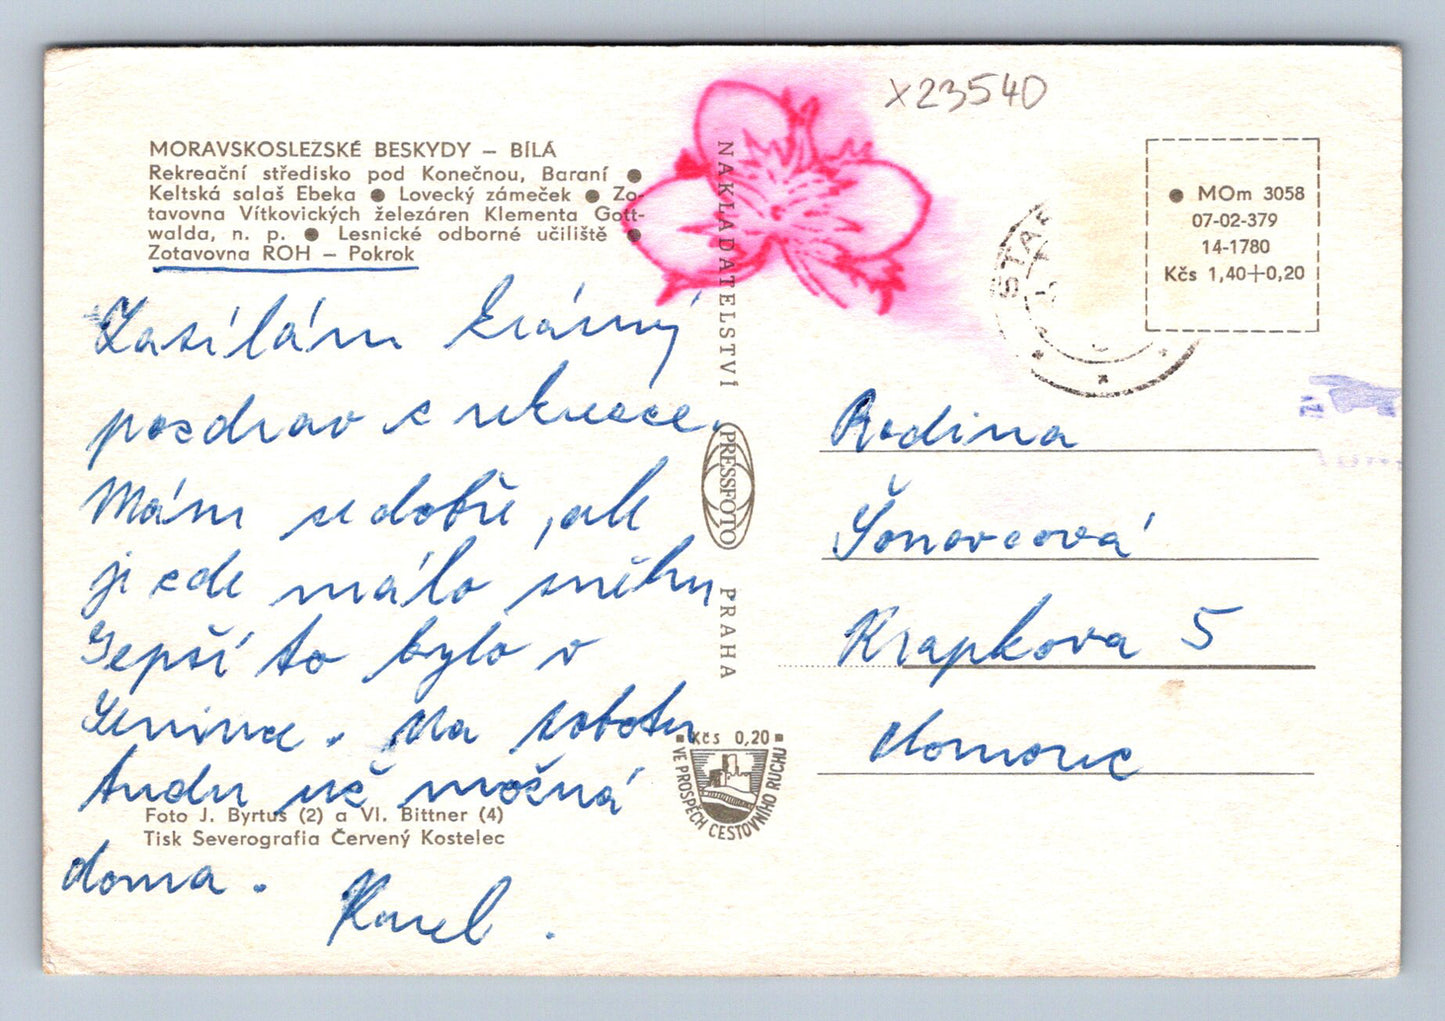 x23540
MORAVSKOSLEZSKÉ BESKYDY – BÍLÁ
Rekreační středisko pod Konečnou, Baraní ●
Keltská salaš Ebeka ● Lovecký zámeček ● Zo-
tavovna Vítkovických železáren Klementa Gott-
walda, n. p. ● Lesnické odborné učiliště ●
Zotavovna ROH – Pokrok
Zasílám krásný
pozdrav z rekreace.
Mám se dobře, ale
je zde málo sněhu
Lepší to bylo v
. Na sobotu
budu už možná
doma.
Karel.
Foto J. Byrtus (2) a Vl. Bittner (4)
Tisk Severografia Červený Kostelec
NAKLADATELSTVÍ
PRESSFOTO
PRAHA
Kčs 0,20
VE PROSPĚCH CESTOVNÍHO RUCHU
● MOm 3058
07-02-379
14-1780
Kčs 1,40+0,20
STAR
Rodina
Šonovcová
Krapkova 5
Olomouc